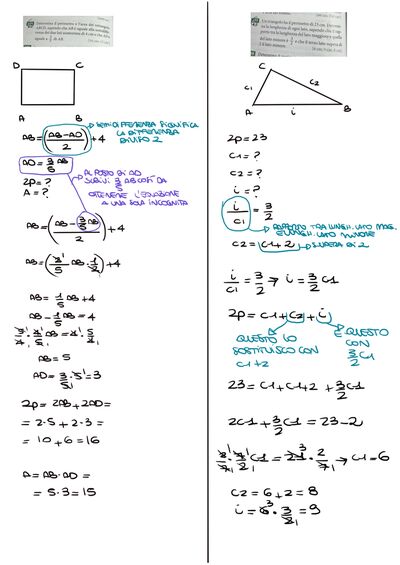 Determina il perimetro e l'area del rettangolo
ABCD, sapendo che AB è uguale alla semidiffe-
renza dei due lati aumentata di 4 cm e che AD
è uguale a 3/5 di AB.
D C
A B
AB = (AB-AD)/2 + 4
SEMIDIFFERENZA SIGNIFICA
LA DIFFERENZA
DIVISO 2
AD = 3/5 AB
2p = ?
A = ?
AL POSTO DI AD
SCRIVI 3/5 AB COSÌ DA
OTTENERE L'EQUAZIONE
A UNA SOLA INCOGNITA
AB = (AB - 3/5 AB)/2 + 4
AB = (2/5 AB · 1/2) + 4
AB = 1/5 AB + 4
AB - 1/5 AB = 4
5/4 · 4/5 AB = 4 · 5/4
AB = 5
AD = 3/5 · 5 = 3
2p = 2AB + 2AD =
= 2·5 + 2·3 =
= 10 + 6 = 16
A = AB · AD =
= 5·3 = 15
Un triangolo ha il perimetro di 23 cm. Determi-
na la lunghezza di ogni lato, sapendo che il rap-
porto tra la lunghezza del lato maggiore e quella
del lato minore è 3/2 e che il terzo lato supera di
2 il lato minore.
C
c1 c2
A i B
2p = 23
c1 = ?
c2 = ?
i = ?
i/c1 = 3/2
RAPPORTO TRA LUNGH. LATO MAG.
E LUNGH. LATO MINORE
c2 = c1 + 2
SUPERA DI 2
i/c1 = 3/2 → i = 3/2 c1
2p = c1 + c2 + i
QUESTO LO
SOSTITUISCO CON
c1 + 2
E QUESTO
CON
3/2 c1
23 = c1 + c1 + 2 + 3/2 c1
2c1 + 3/2 c1 = 23 - 2
2/7 · 7/2 c1 = 21 · 2/7 → c1 = 6
c2 = 6 + 2 = 8
i = 6 · 3/2 = 9